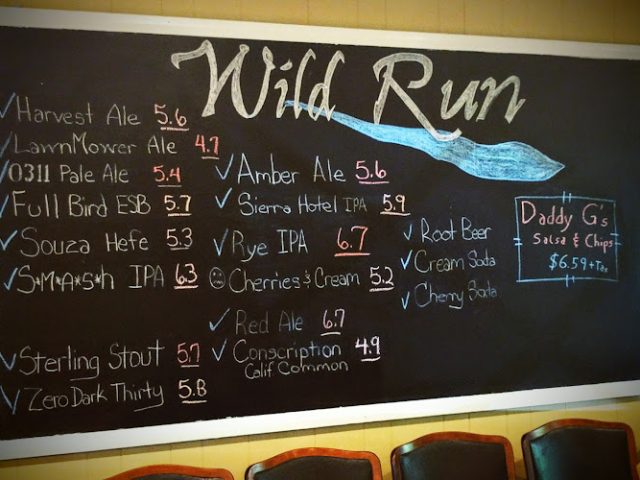 Wild Run
✓ Harvest Ale 5.6
✓ LawnMower Ale 4.7
✓ 0311 Pale Ale 5.4
✓ Full Bird ESB 5.7
✓ Souza Hefe 5.3
✓ S*M*A*S*h IPA 6.3
✓ Sterling Stout 5.7
✓ Zero Dark Thirty 5.8
✓ Amber Ale 5.6
✓ Sierra Hotel IPA 5.9
✓ Rye IPA 6.7
☹ Cherries & Cream 5.2
✓ Red Ale 6.7
✓ Conscription 4.9
Calif Common
✓ Root Beer
✓ Cream Soda
✓ Cherry Soda
Daddy G's
Salsa & Chips
$6.59 + Tax